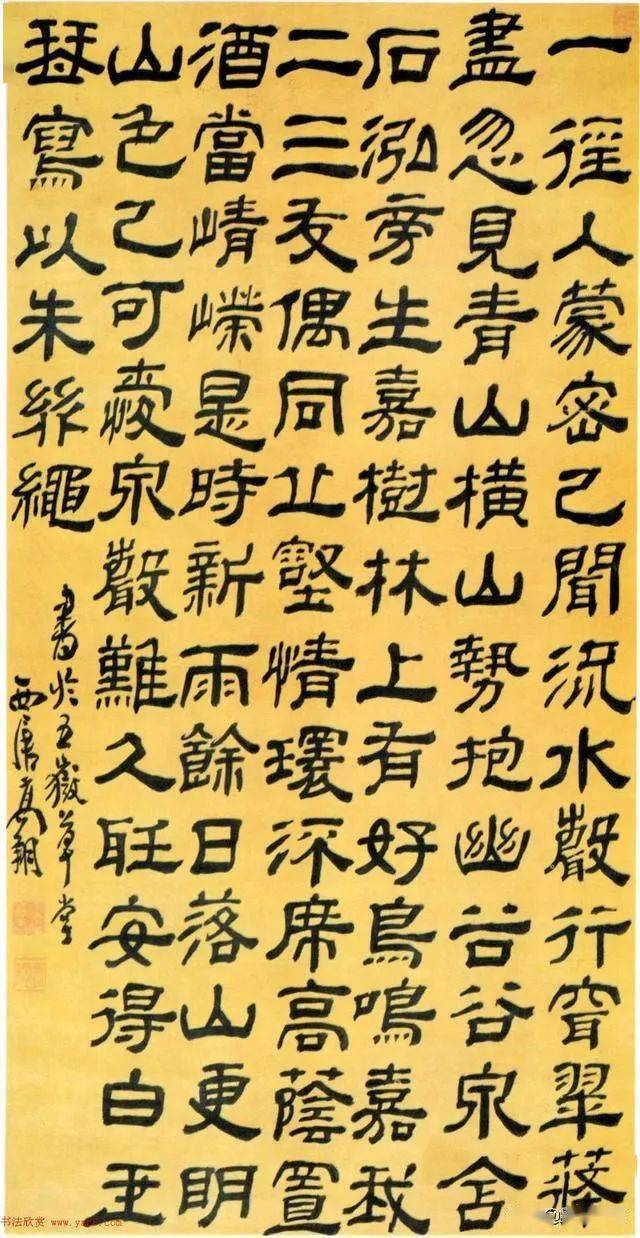 一徑入蒙密已聞流水聲行穿翠篠
盡忽見青山橫山勢抱幽谷谷泉含
石泓旁生嘉樹林上有好鳥鳴嘉我
二三友偶同丘壑情環流席高蔭置
酒當崢嶸是時新雨餘日落山更明
山色已可愛泉聲難久聽安得白玉
琴寫以朱絲繩
書於五嶽草堂
西唐高翔
书法欣赏